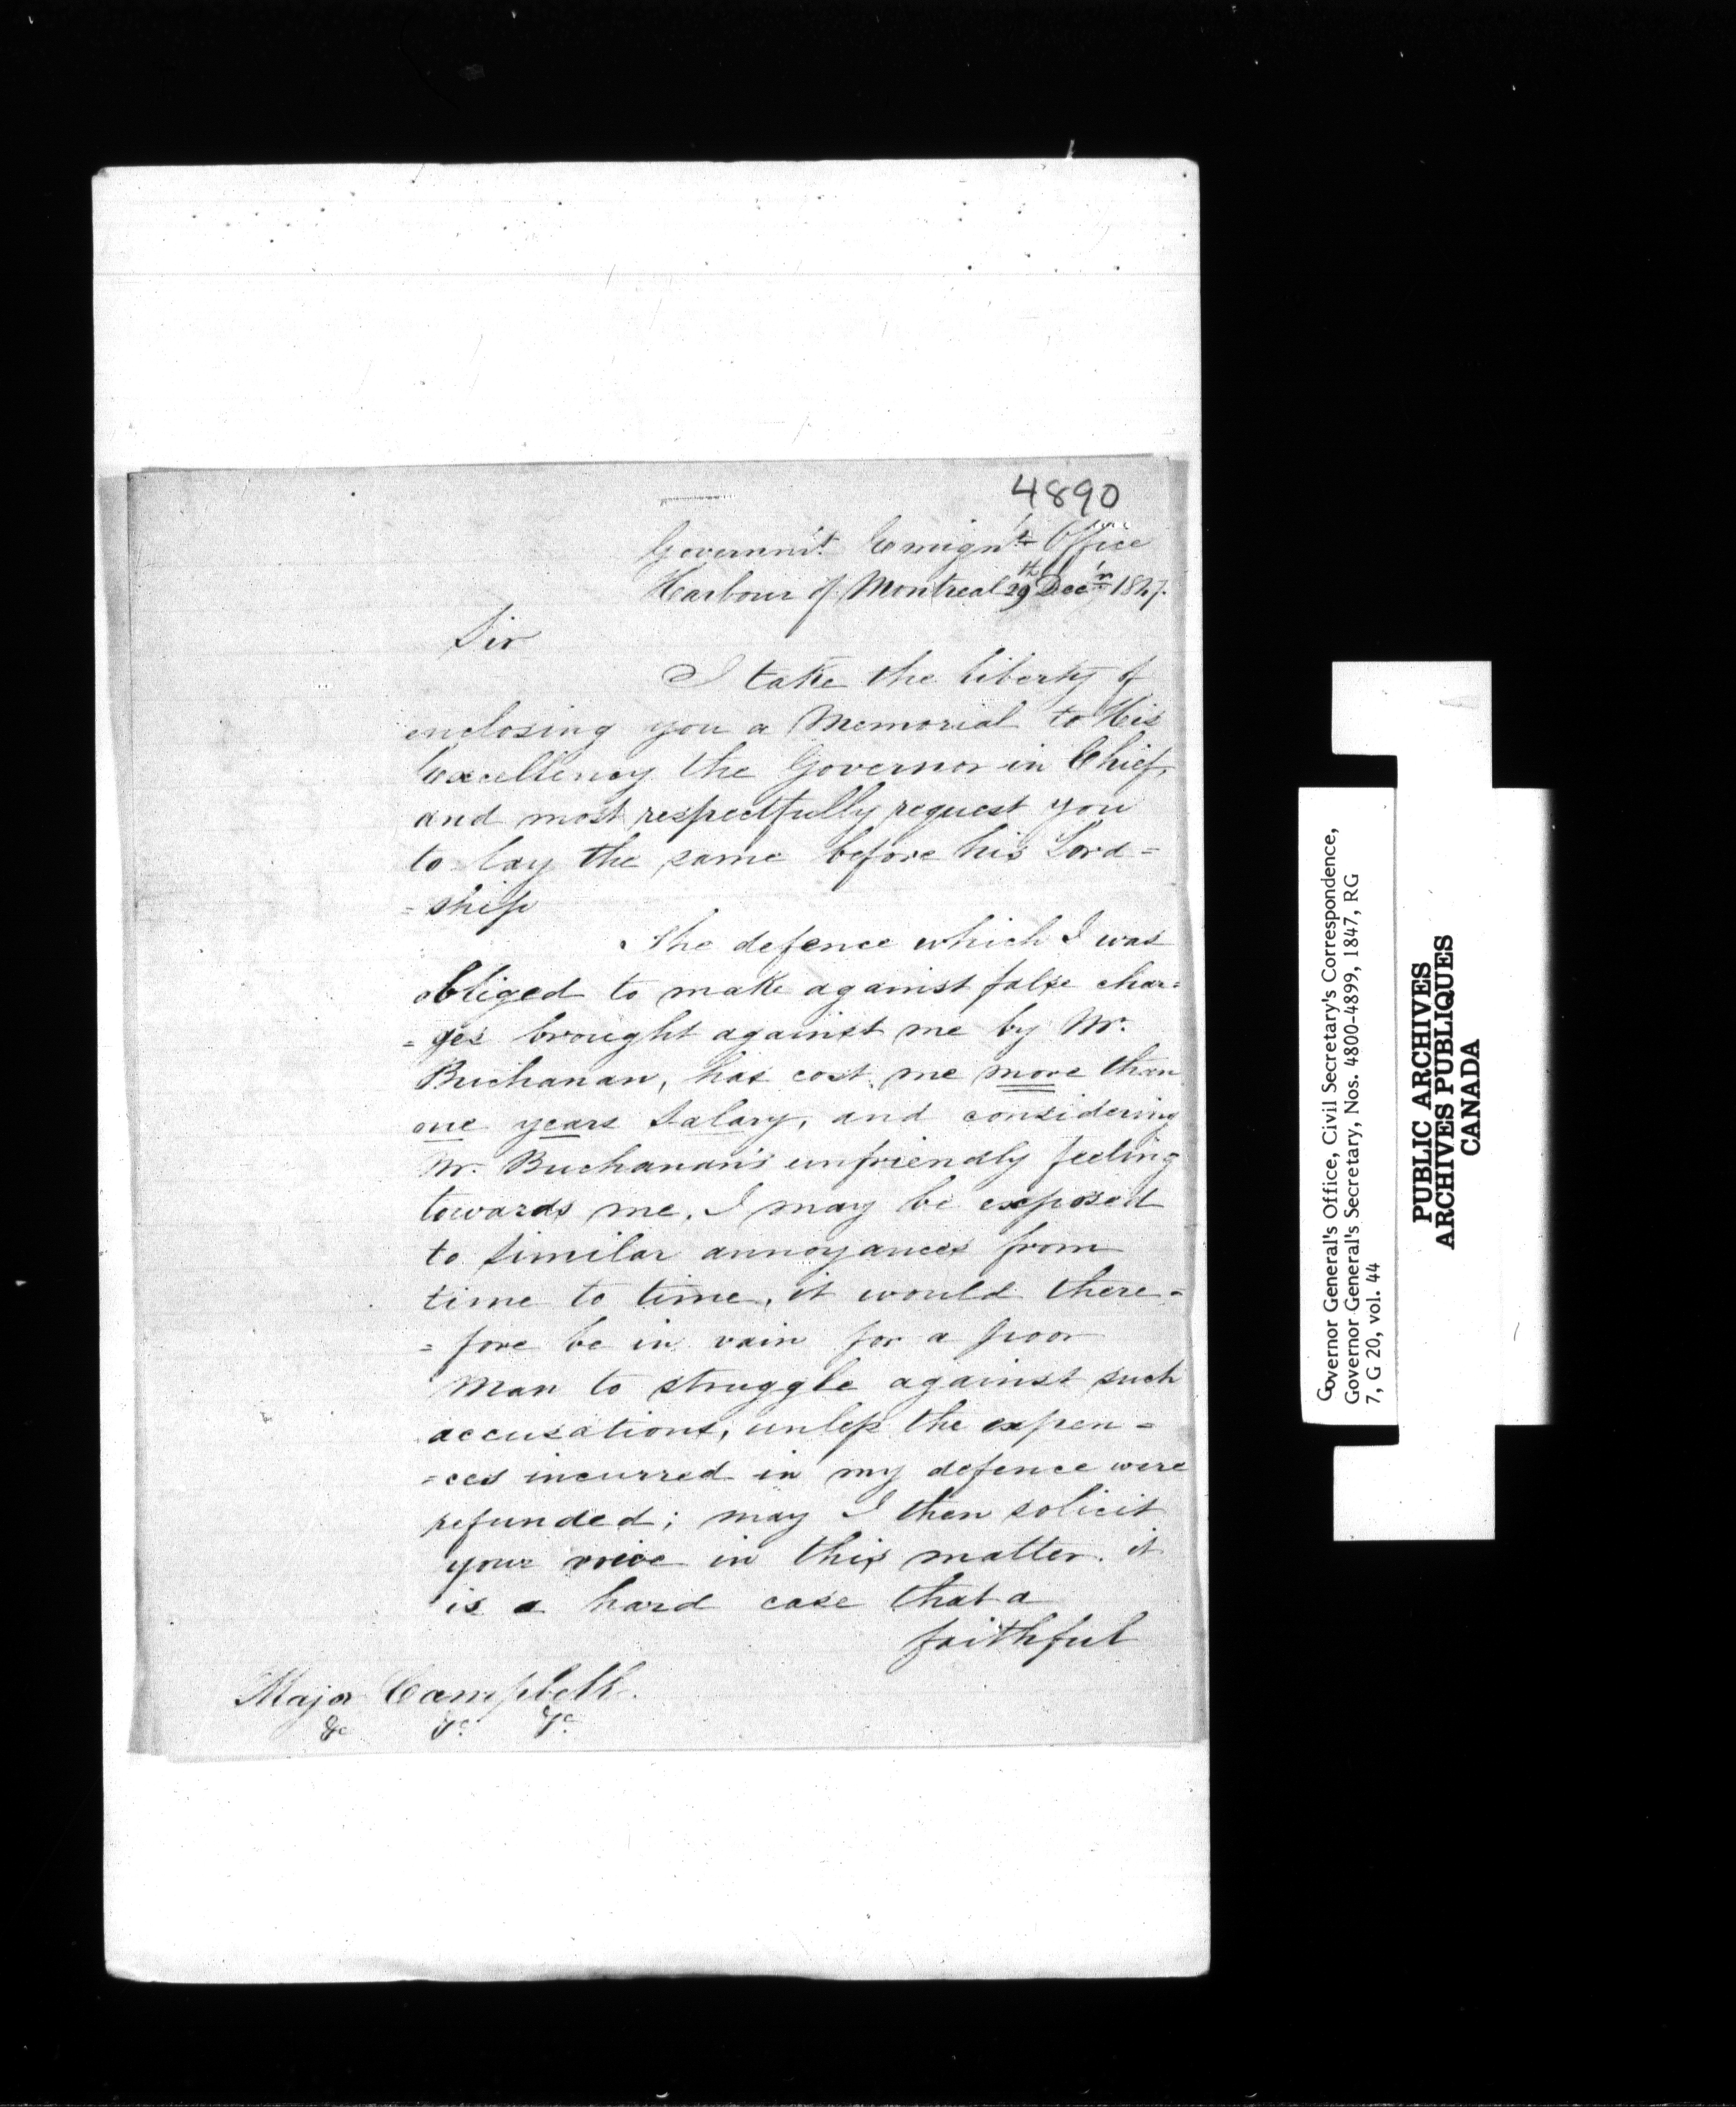 4890
Governm't Emign't Office
Harbour of Montreal 29th Dec'r 1847.
Sir
I take the liberty of
enclosing you a Memorial to His
Excellency the Governor in Chief,
and most respectfully request you
to lay the same before his Lord=
=ship
The defence which I was
obliged to make against false char=
=ges brought against me by Mr.
Buchanan, has cost me more than
one years Salary, and considering
Mr. Buchanan's unfriendly feeling
towards me, I may be exposed
to similar annoyances from
time to time, it would there=
=fore be in vain for a poor
Man to struggle against such
accusations, unless the expen=
=ces incurred in my defence were
refunded; may I then solicit
your voice in this matter. it
is a hard case that a
faithful
Major Campbell.
&c &c &c
Governor General's Office, Civil Secretary's Correspondence,
Governor General's Secretary, Nos. 4800-4899, 1847, RG
7, G 20, vol. 44
PUBLIC ARCHIVES
ARCHIVES PUBLIQUES
CANADA